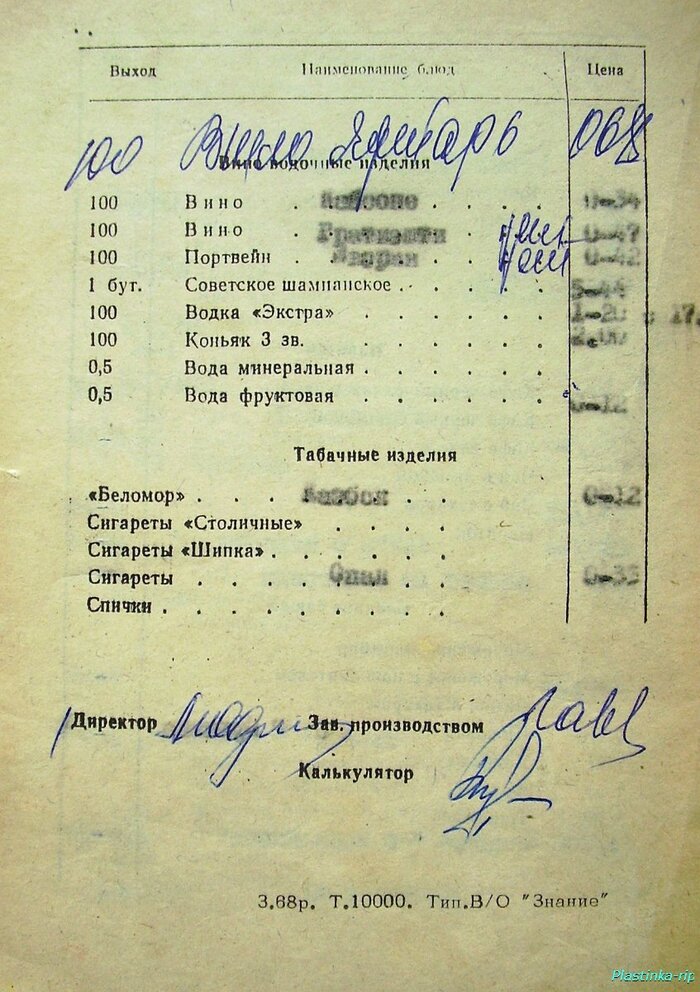 Выход Наименование блюд Цена
100 Вино Янтарь 068
Вино водочные изделия
100 Вино . . . . . . 0-34
100 Вино . . . 0-47
100 Портвейн . . . 0-42
1 бут. Советское шампанское . . . .
100 Водка «Экстра» . . . . . . 1-20
100 Коньяк 3 зв. . . . . . .
0,5 Вода минеральная . . . . . .
0,5 Вода фруктовая . . . . . 0-12
Табачные изделия
«Беломор» . . . . . 0-12
Сигареты «Столичные» . . . .
Сигареты «Шипка» . . . . . .
Сигареты . . . Опал . . 0-35
Спички . . . . . . . . .
Директор Зав. производством
Калькулятор
З.68р. Т.10000. Тип.В/О "Знание"
Plastinka-rip